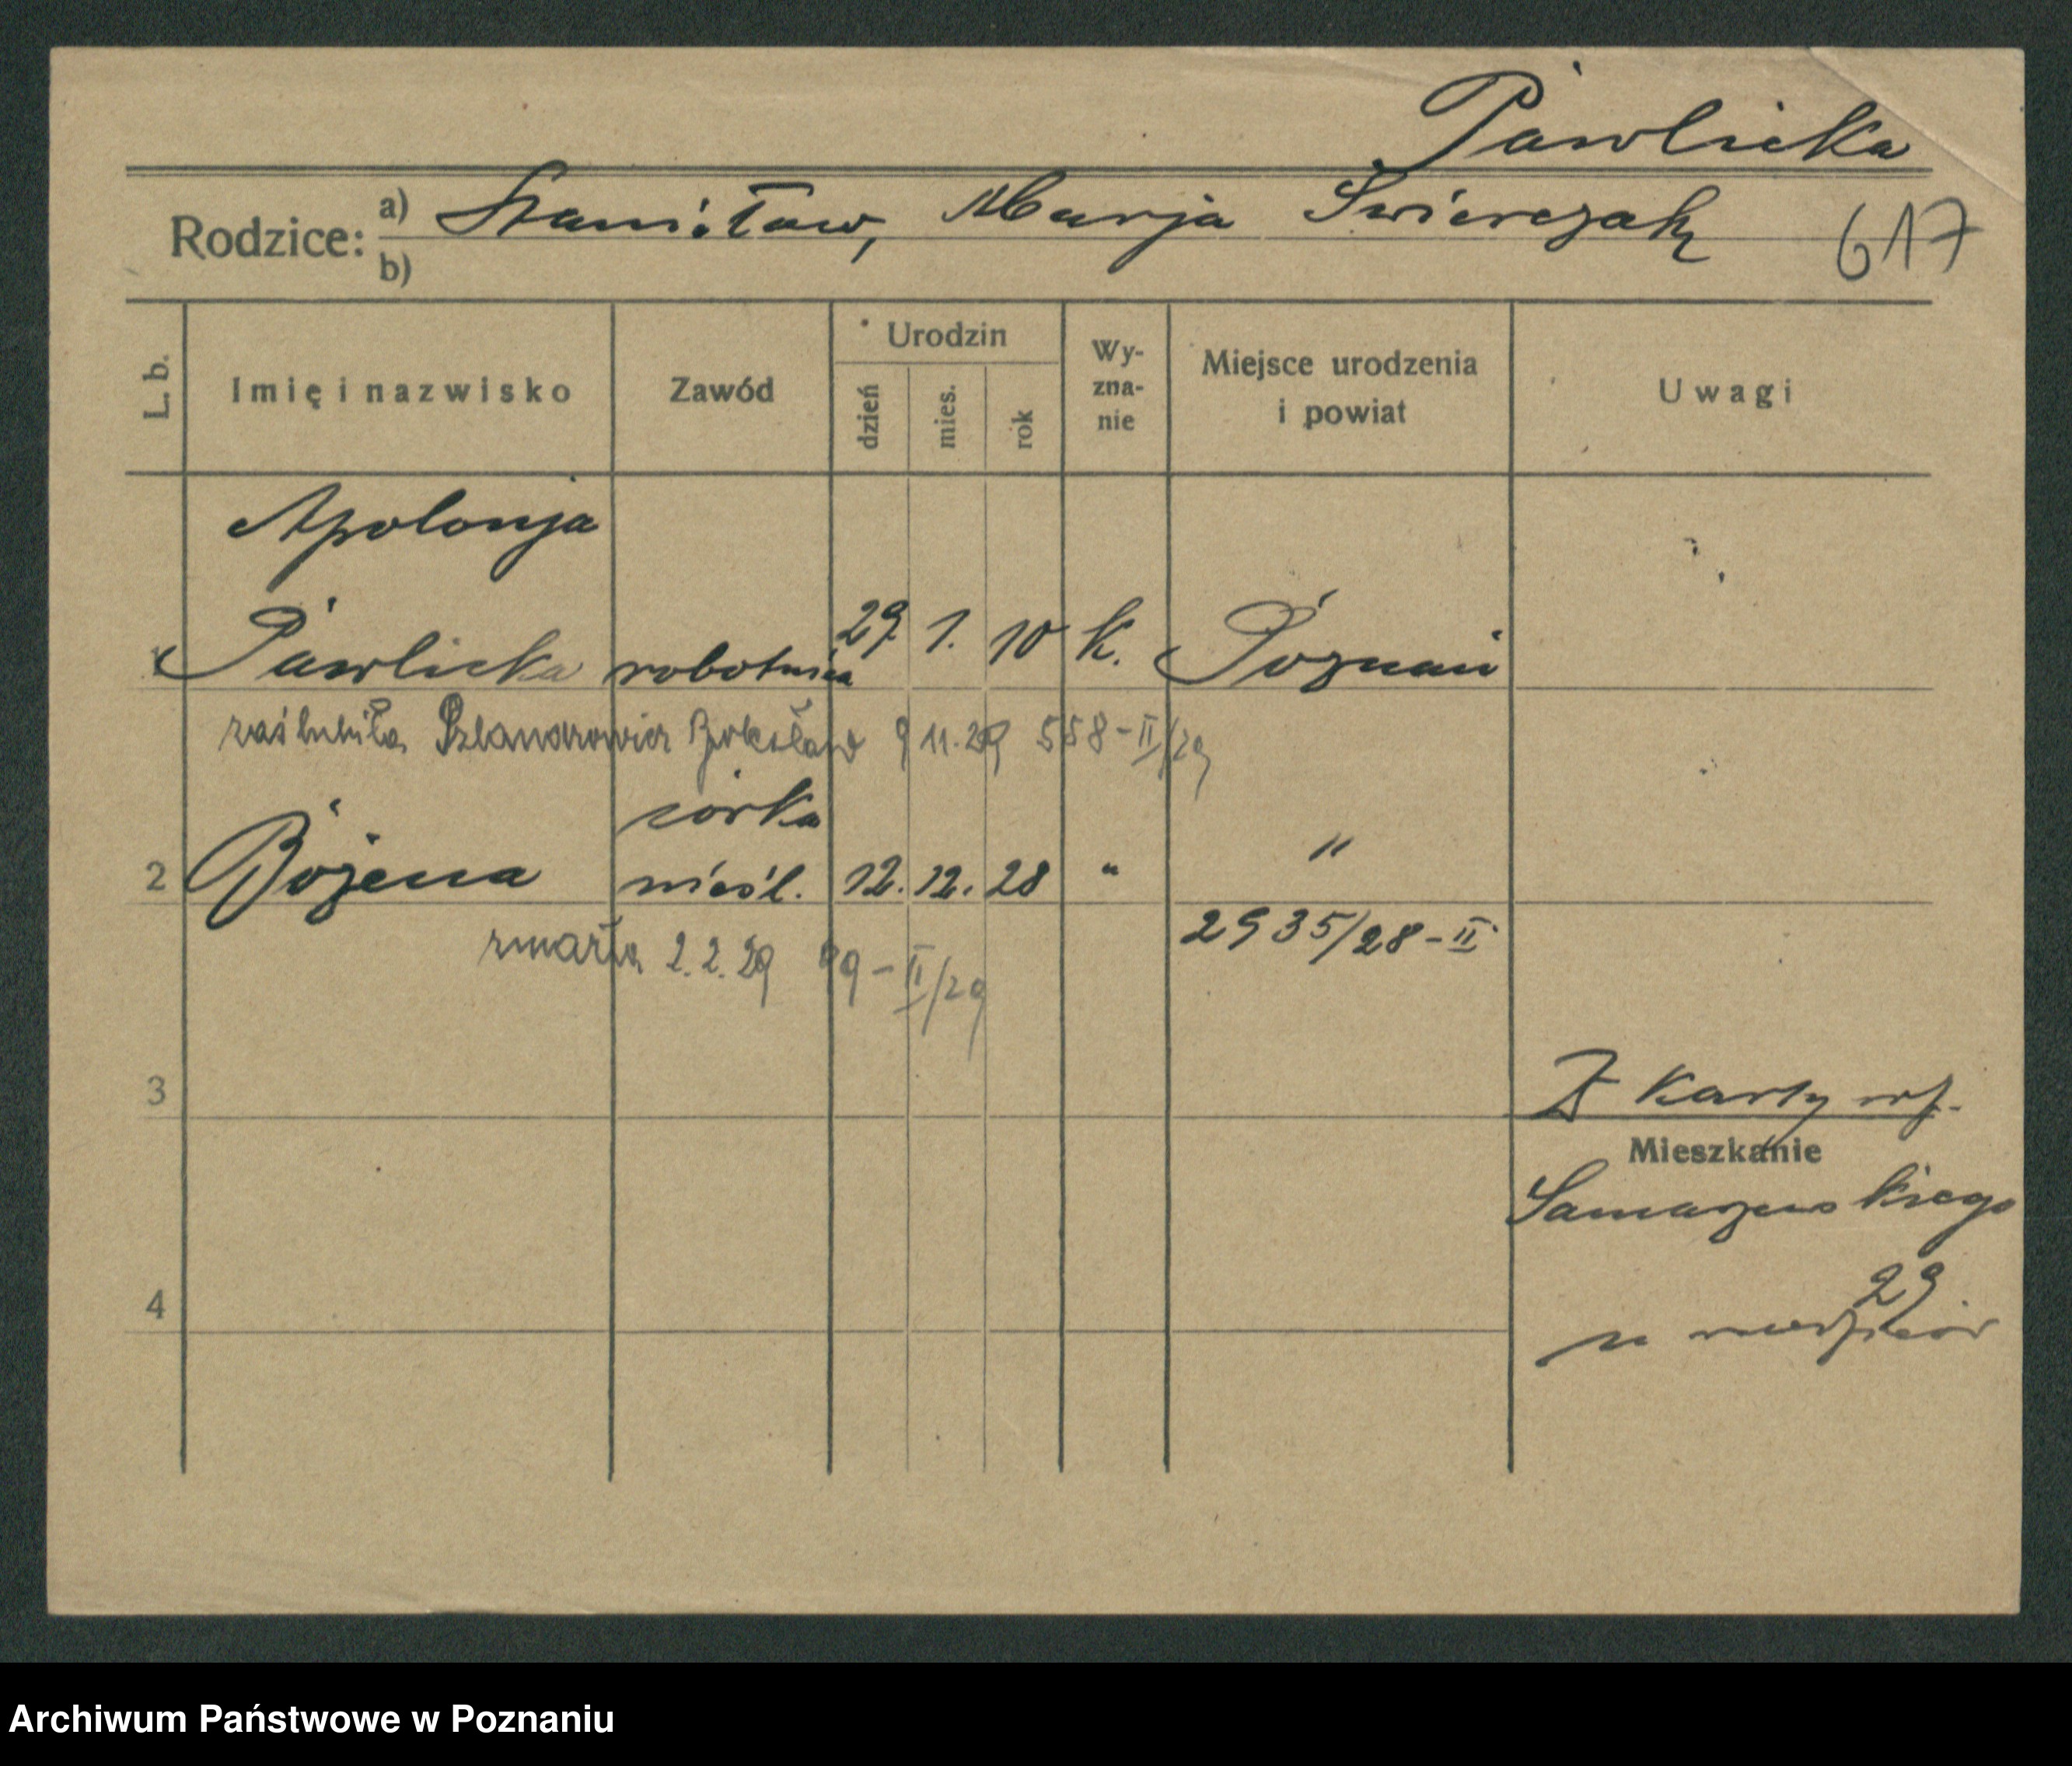 Pawlicka
Rodzice: a) Stanisław, Marja Świerczak 617
b)
L. b. Imię i nazwisko Zawód Urodzin dzień mies. rok Wy-zna-nie Miejsce urodzenia i powiat Uwagi
Apolonja
1 Pawlicka robotnica 29. 1. 10 k. Poznań
zaślubiła 9 11. 29 558-II/29
córka
2 Bożena nieśl. 12. 12. 28 " "
2935/28-II
zmarła 2. 2. 29 99-II/29
3 Z karty
Mieszkanie
Samarzewskiego
29
4
Archiwum Państwowe w Poznaniu